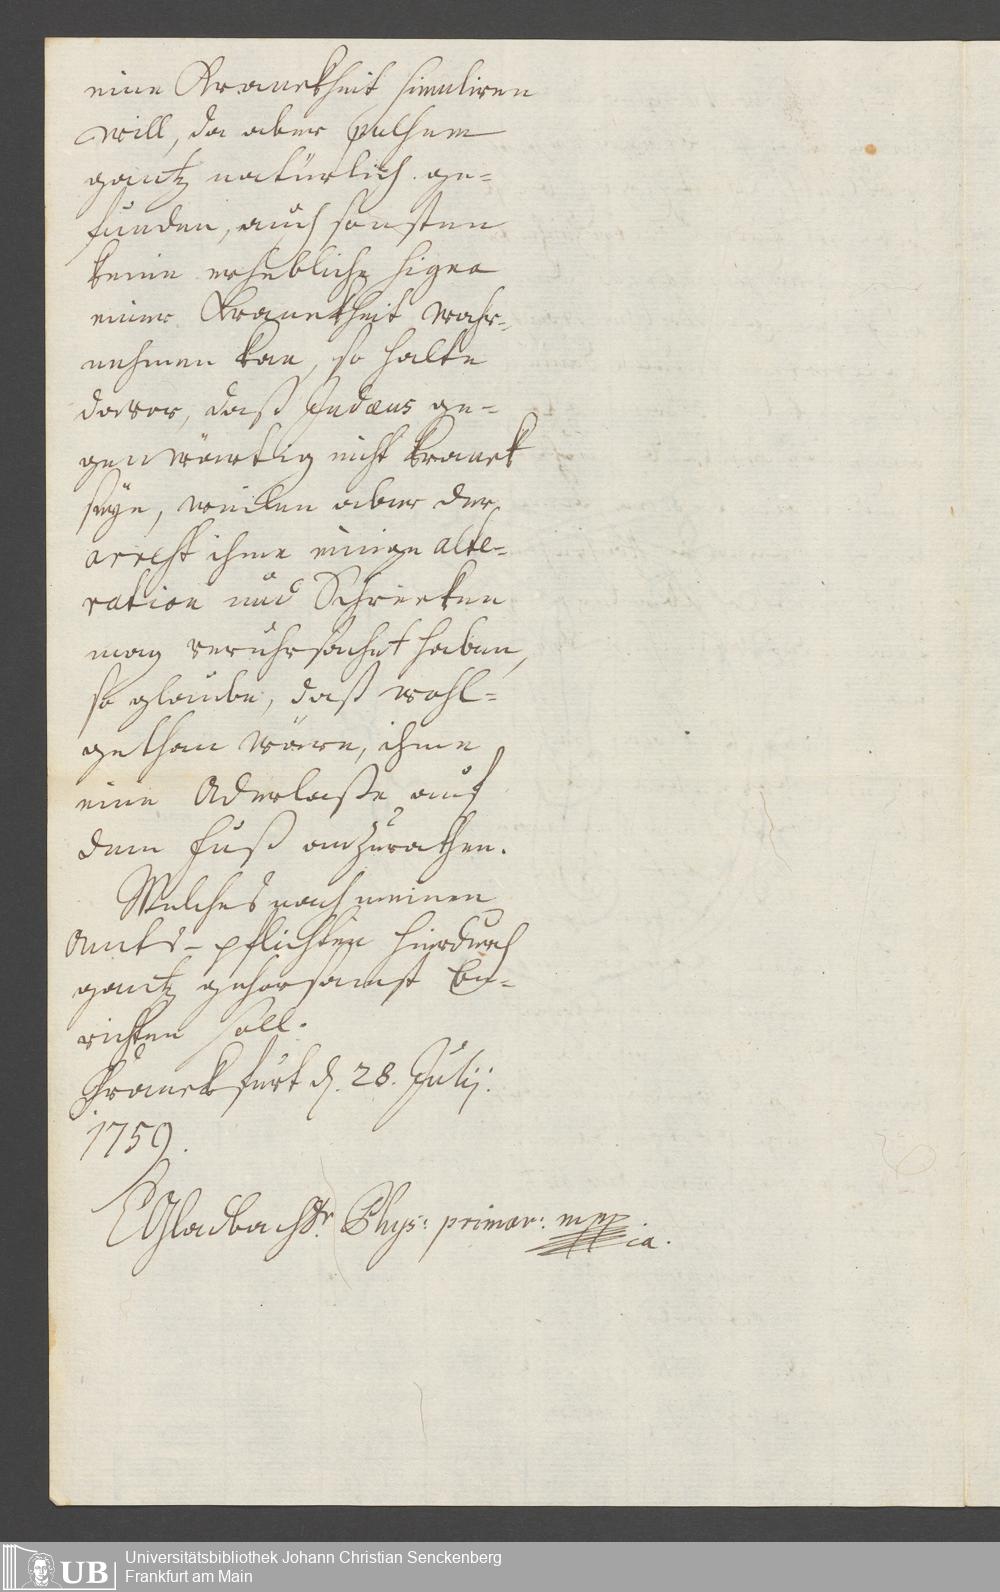 eine Kranckheit simuliren
will, da aber pulsum
gantz natürlich ge-
funden, auch sonsten
keine erhebliche signa
einer Kranckheit wahr-
nehmen kan, so halte
davor, daß Judæus ge-
genwärtig nicht kranck
seye, weilen aber der
arrest ihme einige alte-
ration und Schrecken
mag veruhrsachet haben,
so glaube, daß wohl-
gethan wäre, ihme
eine Aderlaße auf
dem Fuß anzurathen.
Welches nach meinen
Amts-pflichten hierdurch
gantz gehorsamst be-
richten soll.
Franckfurt d. 28. Julij.
1759.
Gladbach Dr. Phys: primar: mppia.
Universitätsbibliothek Johann Christian Senckenberg
Frankfurt am Main
UB